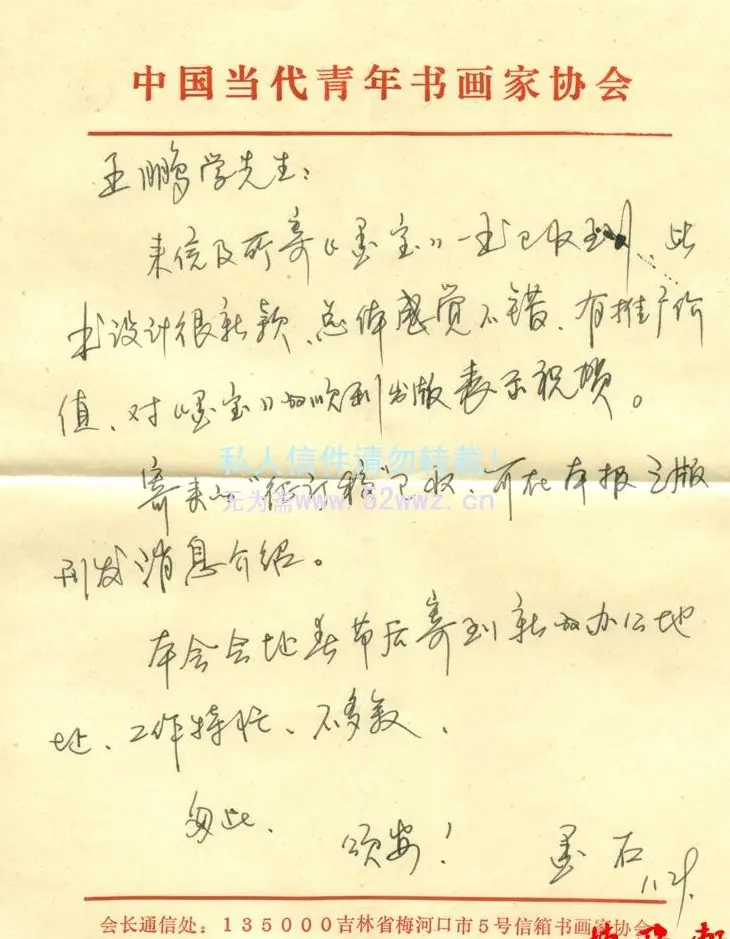 中国当代青年书画家协会
王鹏学先生：
来信及所寄《墨宝》一书已收到、此
书设计很新颖、总体感觉不错、有推广价
值、对《墨宝》的顺利出版表示祝贺。
私人信件请勿转载！
寄来的“征订稿”已收、可在本报三版
无为斋www.52wwz.cn
刊发消息介绍。
本会会址春节后寄到新的办公地
址、工作特忙、不多叙、
匆此、
颂安！ 墨石
会长通信处：135000吉林省梅河口市5号信箱书画家协会